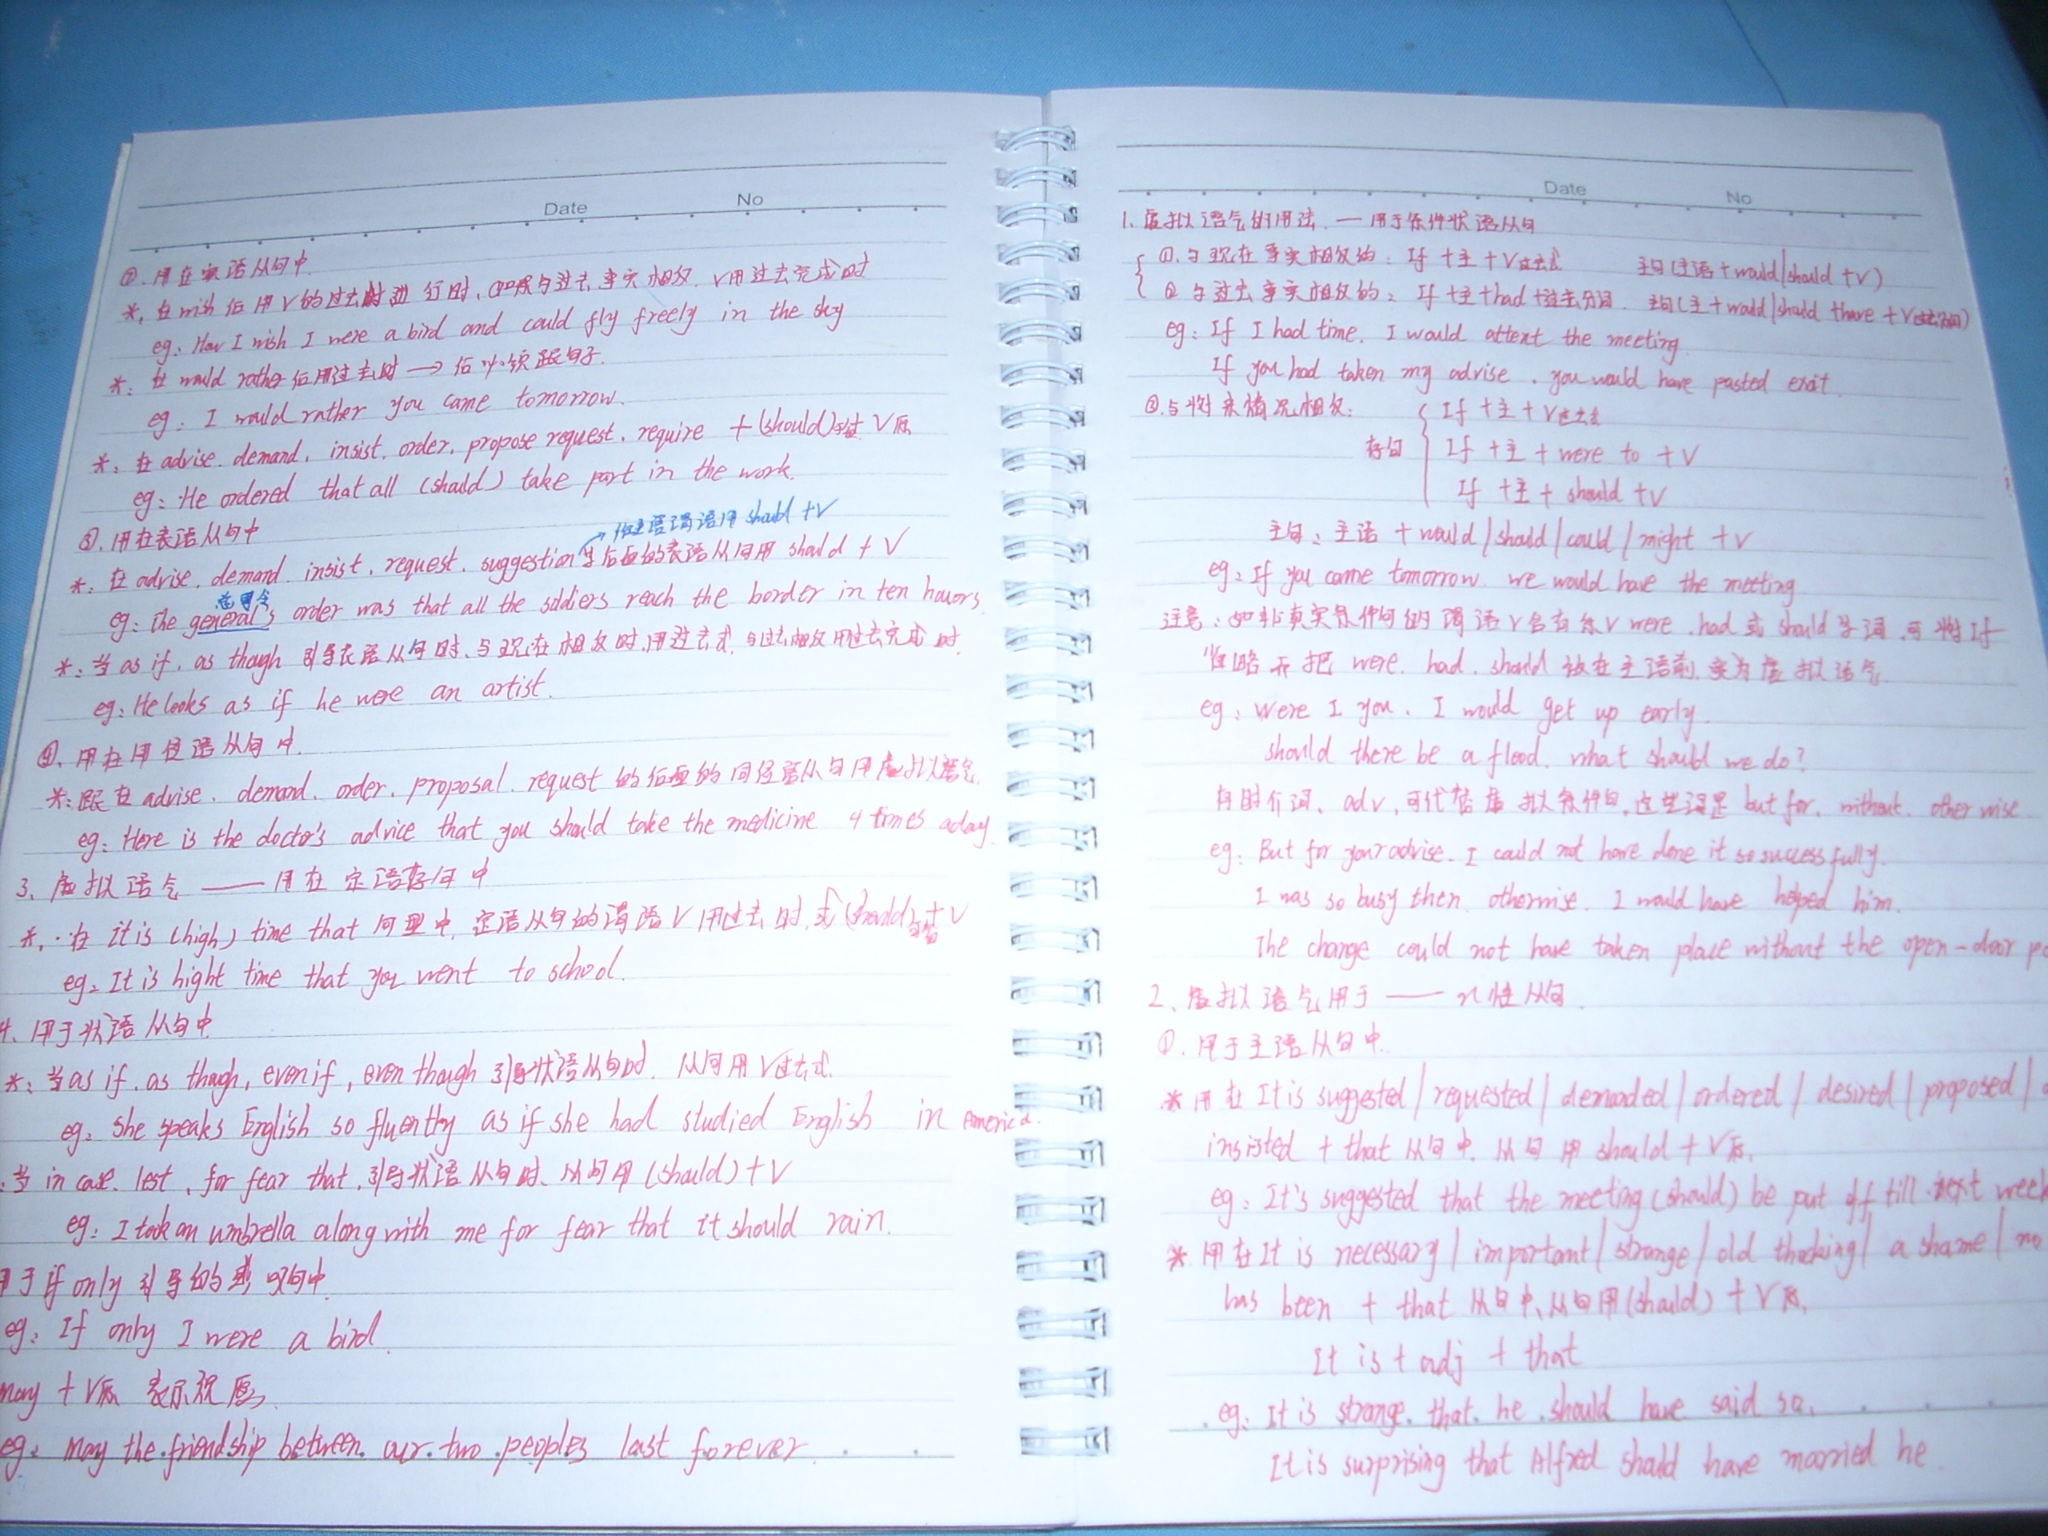 Date No
②. 用在宾语从句中
*. 在wish后用V的过去时进行时, 如果与过去事实相反. V用过去完成时
eg: How I wish I were a bird and could fly freely in the sky
*: 在would rather后用过去时 → 后必须跟句子.
eg: I would rather you came tomorrow.
*: 在advise. demand. insist. order. propose request. require + (should) V原
eg: He ordered that all (should) take part in the work.
③. 用在表语从句中
作主语谓语用 should + V
*: 在advise. demand. insist. request. suggestion 等后面的表语从句用 should + V
总司令
eg: The general's order was that all the soldiers reach the border in ten hours.
*: 当as if. as though 引导表语从句时. 与现在相反时.用过去式. 与过去相反用过去完成时.
eg: He looks as if he were an artist.
④. 用在同位语从句中.
*: 跟在advise. demand. order. proposal. request 的后面的同位语从句用虚拟语气.
eg: Here is the doctor's advice that you should take the medicine 4 times a day.
3. 虚拟语气 —— 用在定语从句中
*. 在it is (high) time that 句型中. 定语从句的谓语V用过去时, 或(should) + V
eg. It is hight time that you went to school.
4. 用于状语从句中
*: 当as if. as though, even if, even though 引导状语从句时. 从句用V过去式.
eg. She speaks English so fluently as if she had studied English in America.
: 当in case. lest. for fear that. 引导状语从句时. 从句用 (should) + V
eg: I took an umbrella along with me for fear that it should rain.
用于if only引导的感叹句中.
eg: If only I were a bird.
may + V原 表示祝愿.
eg: May the friendship between our two peoples last forever.
Date No
1. 虚拟语气的用法. — 用于条件状语从句
①. 与现在事实相反的: If + 主 + V过去式 主句(主语 + would|should + V)
② 与过去事实相反的: If + 主 + had + 过去分词. 主句(主 + would|should + have + V过去分词)
eg: If I had time. I would attent the meeting.
If you had taken my advise. you would have pasted exit.
③. 与将来情况相反: If + 主 + V过去式
从句 If + 主 + were to + V
If + 主 + should + V
主句: 主语 + would / should / could / might + V
eg: If you came tomorrow. we would have the meeting.
注意: 如非真实条件句的谓语V含有系V were. had 或 should 等词. 可将If
省略并把 were. had. should 放在主语前, 变为虚拟语气.
eg: Were I you. I would get up early.
should there be a flood. what should we do?
有时介词、adv, 可代替虚拟条件句, 这些词是 but for. without. otherwise.
eg: But for your advise. I could not have done it so successfully.
I was so busy then. otherwise. I would have helped him.
The change could not have taken place without the open-door
2. 虚拟语气用于 —— n性从句.
①. 用于主语从句中.
* 用在 It is suggested / requested / demanded / ordered / desired / proposed /
insisted + that 从句中. 从句用 should + V原.
eg: It's suggested that the meeting (should) be put off till next week
* 用在It is necessary / important / strange / / a shame / no
has been + that 从句中、从句用(should) + V原.
It is + adj + that
eg: It is strange that he should have said so.
It is surprising that Alfred should have married he